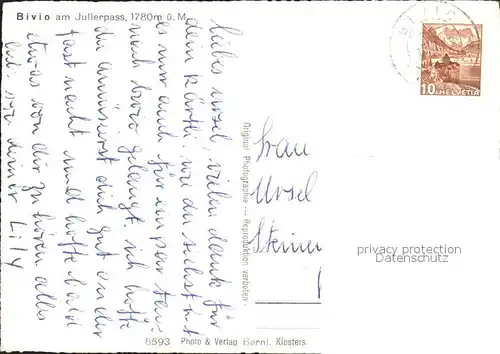 Bivio am Julierpass, 1780m ü. M.
liebes ursel, vielen dank für
dein kärtli. wie du siehst ist
es mir auch für ein par tage
nach bivio gelangt. ich hoffe
du amüsierst dich gut an der
fastnacht und hoffe bald
etwas von dir zu hören alles
liebi
deiner Lily
Original Photographie --- Reproduktion verboten
Frau
Ursel
Steiner
10 HELVETIA
privacy protection
Datenschutz
8593 Photo & Verlag Bernt. Klosters